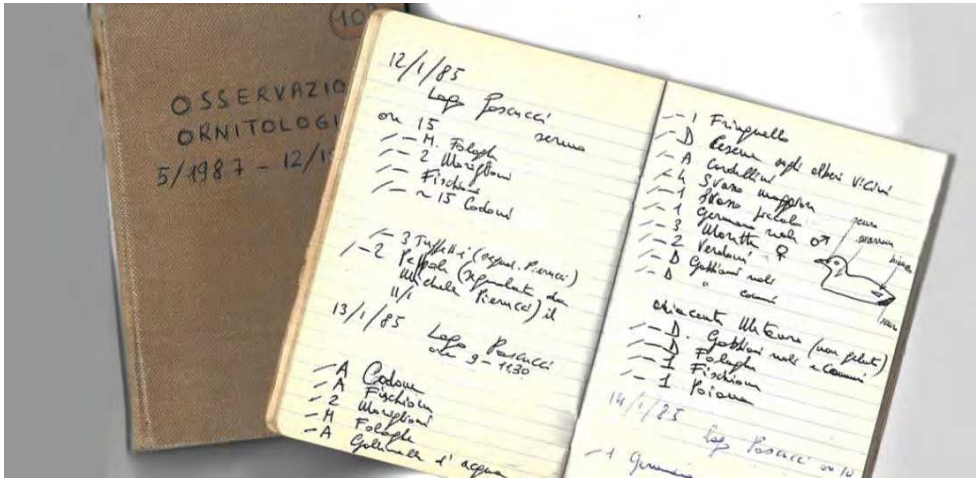 102
OSSERVAZIO
ORNITOLOGI
5/1987 - 12/1
12/1/85
Lago Pascucci
ore 15 sereno
- M. Folaghe
- 2 Moriglioni
- Fischioni
- ~ 15 Codoni
- 3 Tuffetti (segnal. Pierucci)
- 2 (segnalate da
Michele Pierucci) il
11/1
13/1/85
Lago Pascucci
ore 9-11,30
- A Codoni
- A Fischioni
- 2 Moriglioni
- M Folaghe
- A Gallinelle d'acqua
- 1 Fringuello
- D Cesene sugli alberi vicini
- A Cardellini
- 4 Svasso maggiore
- 1 Svasso piccolo
- 1 Germano reale ♂
- 3 Moretta ♀
- 2 Verdoni
- D Gabbiani reali
- D " comuni
scuro
marrone
bianco
adiacente Metauro (non gelato)
- D. Gabbiani reali e comuni
- D Folaghe
- 1 Fischione
- 1 Poiana
14/1/85
Lago Pascucci ore 10
- 1 Germano